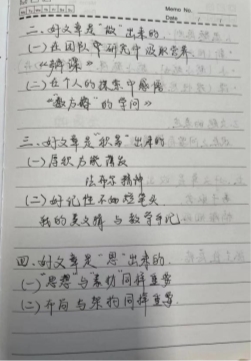 Memo No.
Date / /
二、好文章是"做"出来的
(一)在团队中研究中汲取营养
《磨课》
(二)在个人的探索中感悟
"数为媒"的学问》
三、好文章是"积累"出来的
(一)厚积为求薄发
精神
(二)好记性不如烂笔头
我的美文摘与教学手记
四、好文章是"思"出来的
(一)"思想"与"素材"同样重要
(二)开局与架构同样重要